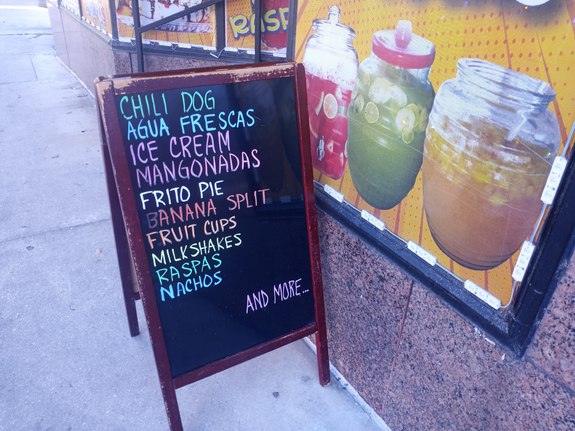 RASP
CHILI DOG
AGUA FRESCAS
ICE CREAM
MANGONADAS
FRITO PIE
BANANA SPLIT
FRUIT CUPS
MILKSHAKES
RASPAS
NACHOS
AND MORE...